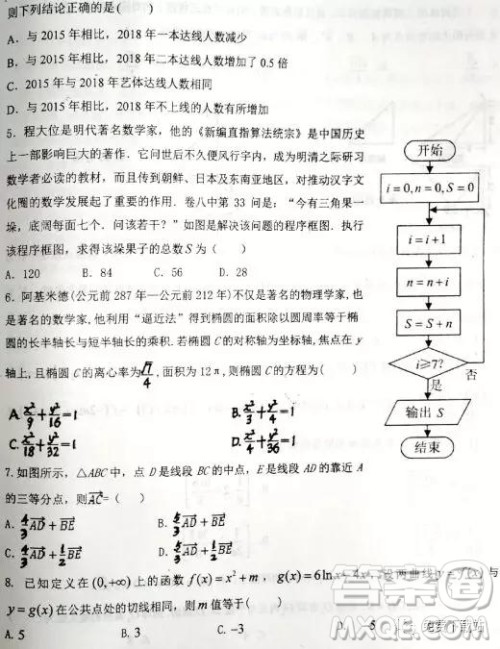 则下列结论正确的是(    )
A．与 2015 年相比，2018 年一本达线人数减少
B．与 2015 年相比，2018 年二本达线人数增加了 0.5 倍
C．与 2015 年相比，2018 年艺体达线人数相同
D．与 2015 年相比，2018 年不上线的人数有所增加
5．程大位是明代著名数学家，他的《新编直指算法统宗》是中国历史
上一部影响巨大的著作．它问世后不久便风行宇内，成为明清之际研习
数学者必读的教材，而且传到朝鲜、日本及东南亚地区．对推动汉字文
化圈的数学发展起了重要的作用．卷八中第 33 问是：“今有三角果一
垛，底阔每面七个．问该若干？”如图是解决该问题的程序框图．执行
该程序框图，求得该垛果子的总数 S 为（    ）
A．120    B．84    C．56    D．28
6．阿基米德(公元前 287 年—公元前 212 年)不仅是著名的物理学家，也
是著名的数学家，他利用“逼近法”得到椭圆的面积除以圆周率等于椭
圆的长半轴长与短半轴长的乘积．若椭圆 C 的对称轴为坐标轴，焦点在 y
轴上，且椭圆 C 的离心率为 √7/4，面积为 12π，则椭圆 C 的方程为(    )
A. x²/9 + y²/16 = 1    B. x²/3 + y²/4 = 1
C. x²/18 + y²/32 = 1    D. x²/4 + y²/36 = 1
7．如图所示，△ABC 中，点 D 是线段 BC 的中点，E 是线段 AD 的靠近 A
的三等分点，则 AC→ =（    ）
A. 4/3 AD→ + BE→    B. 5/3 AD→ + BE→
C. 4/3 AD→ + 1/2 BE→    D. 5/3 AD→ + 1/2 BE→
8．已知定义在 (0,+∞) 上的函数 f(x) = x² + m，g(x) = 6ln x − 4x，设两曲线 y = f(x) 与
y = g(x) 在公共点处的切线相同，则 m 值等于(    )
A. 5    B. 3    C. −3    D. −5
开始
i = 0, n = 0, S = 0
i = i+1
n = n+i
S = S+n
i≥7?
否
是
输出 S
结束